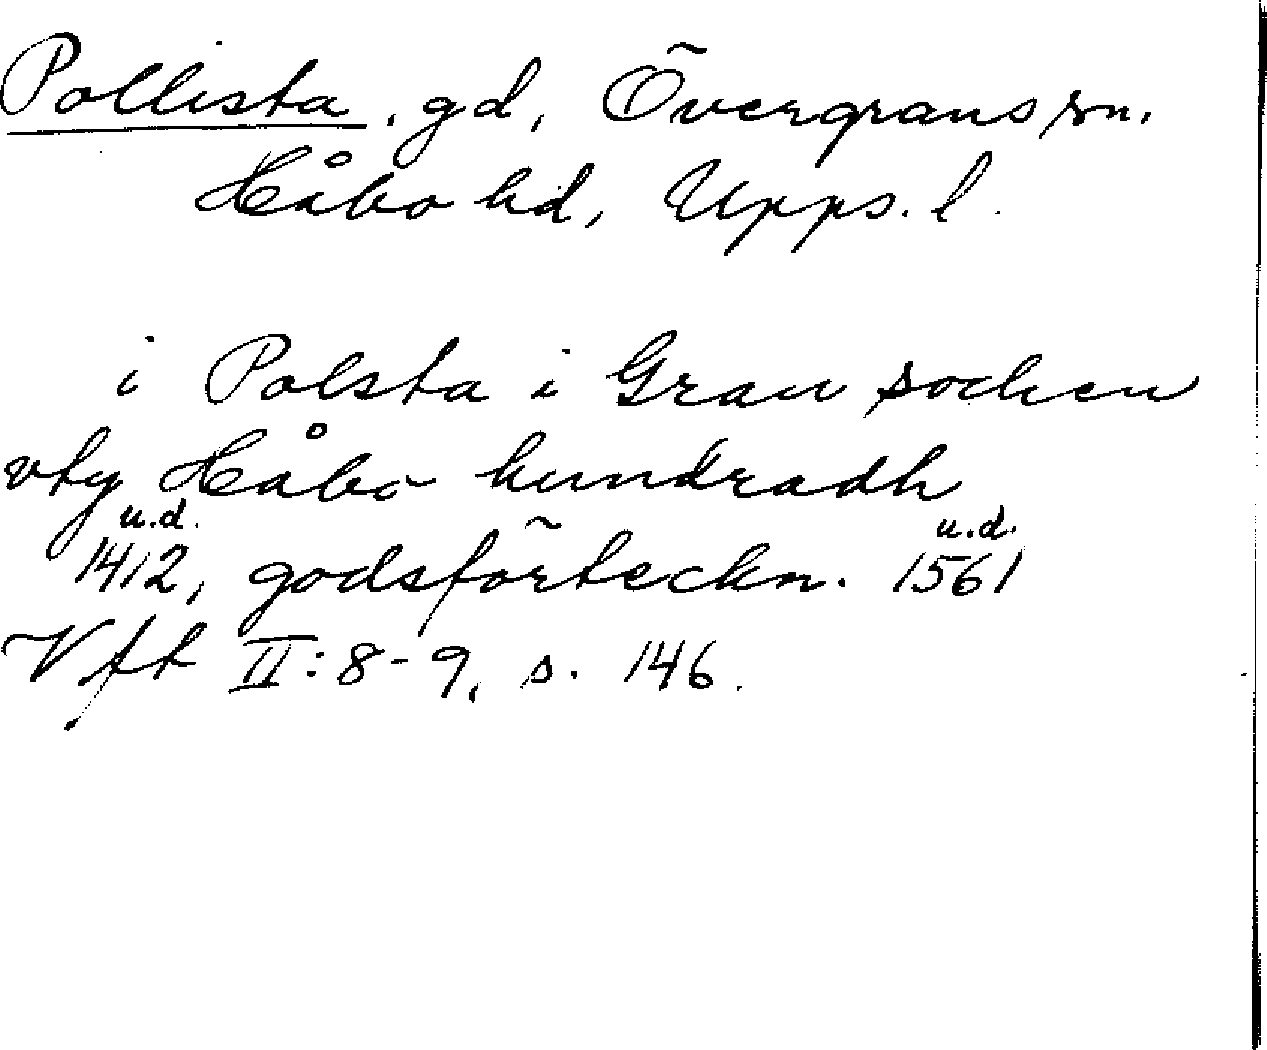 Pollista, gd, Övergrans sn.
Håbo hd, Upps. l.
i Polsta i Gran sochen
vty Håbo hundradh
u.d. u.d.
1412, godsförteckn. 1561
Vft II: 8-9, s. 146.